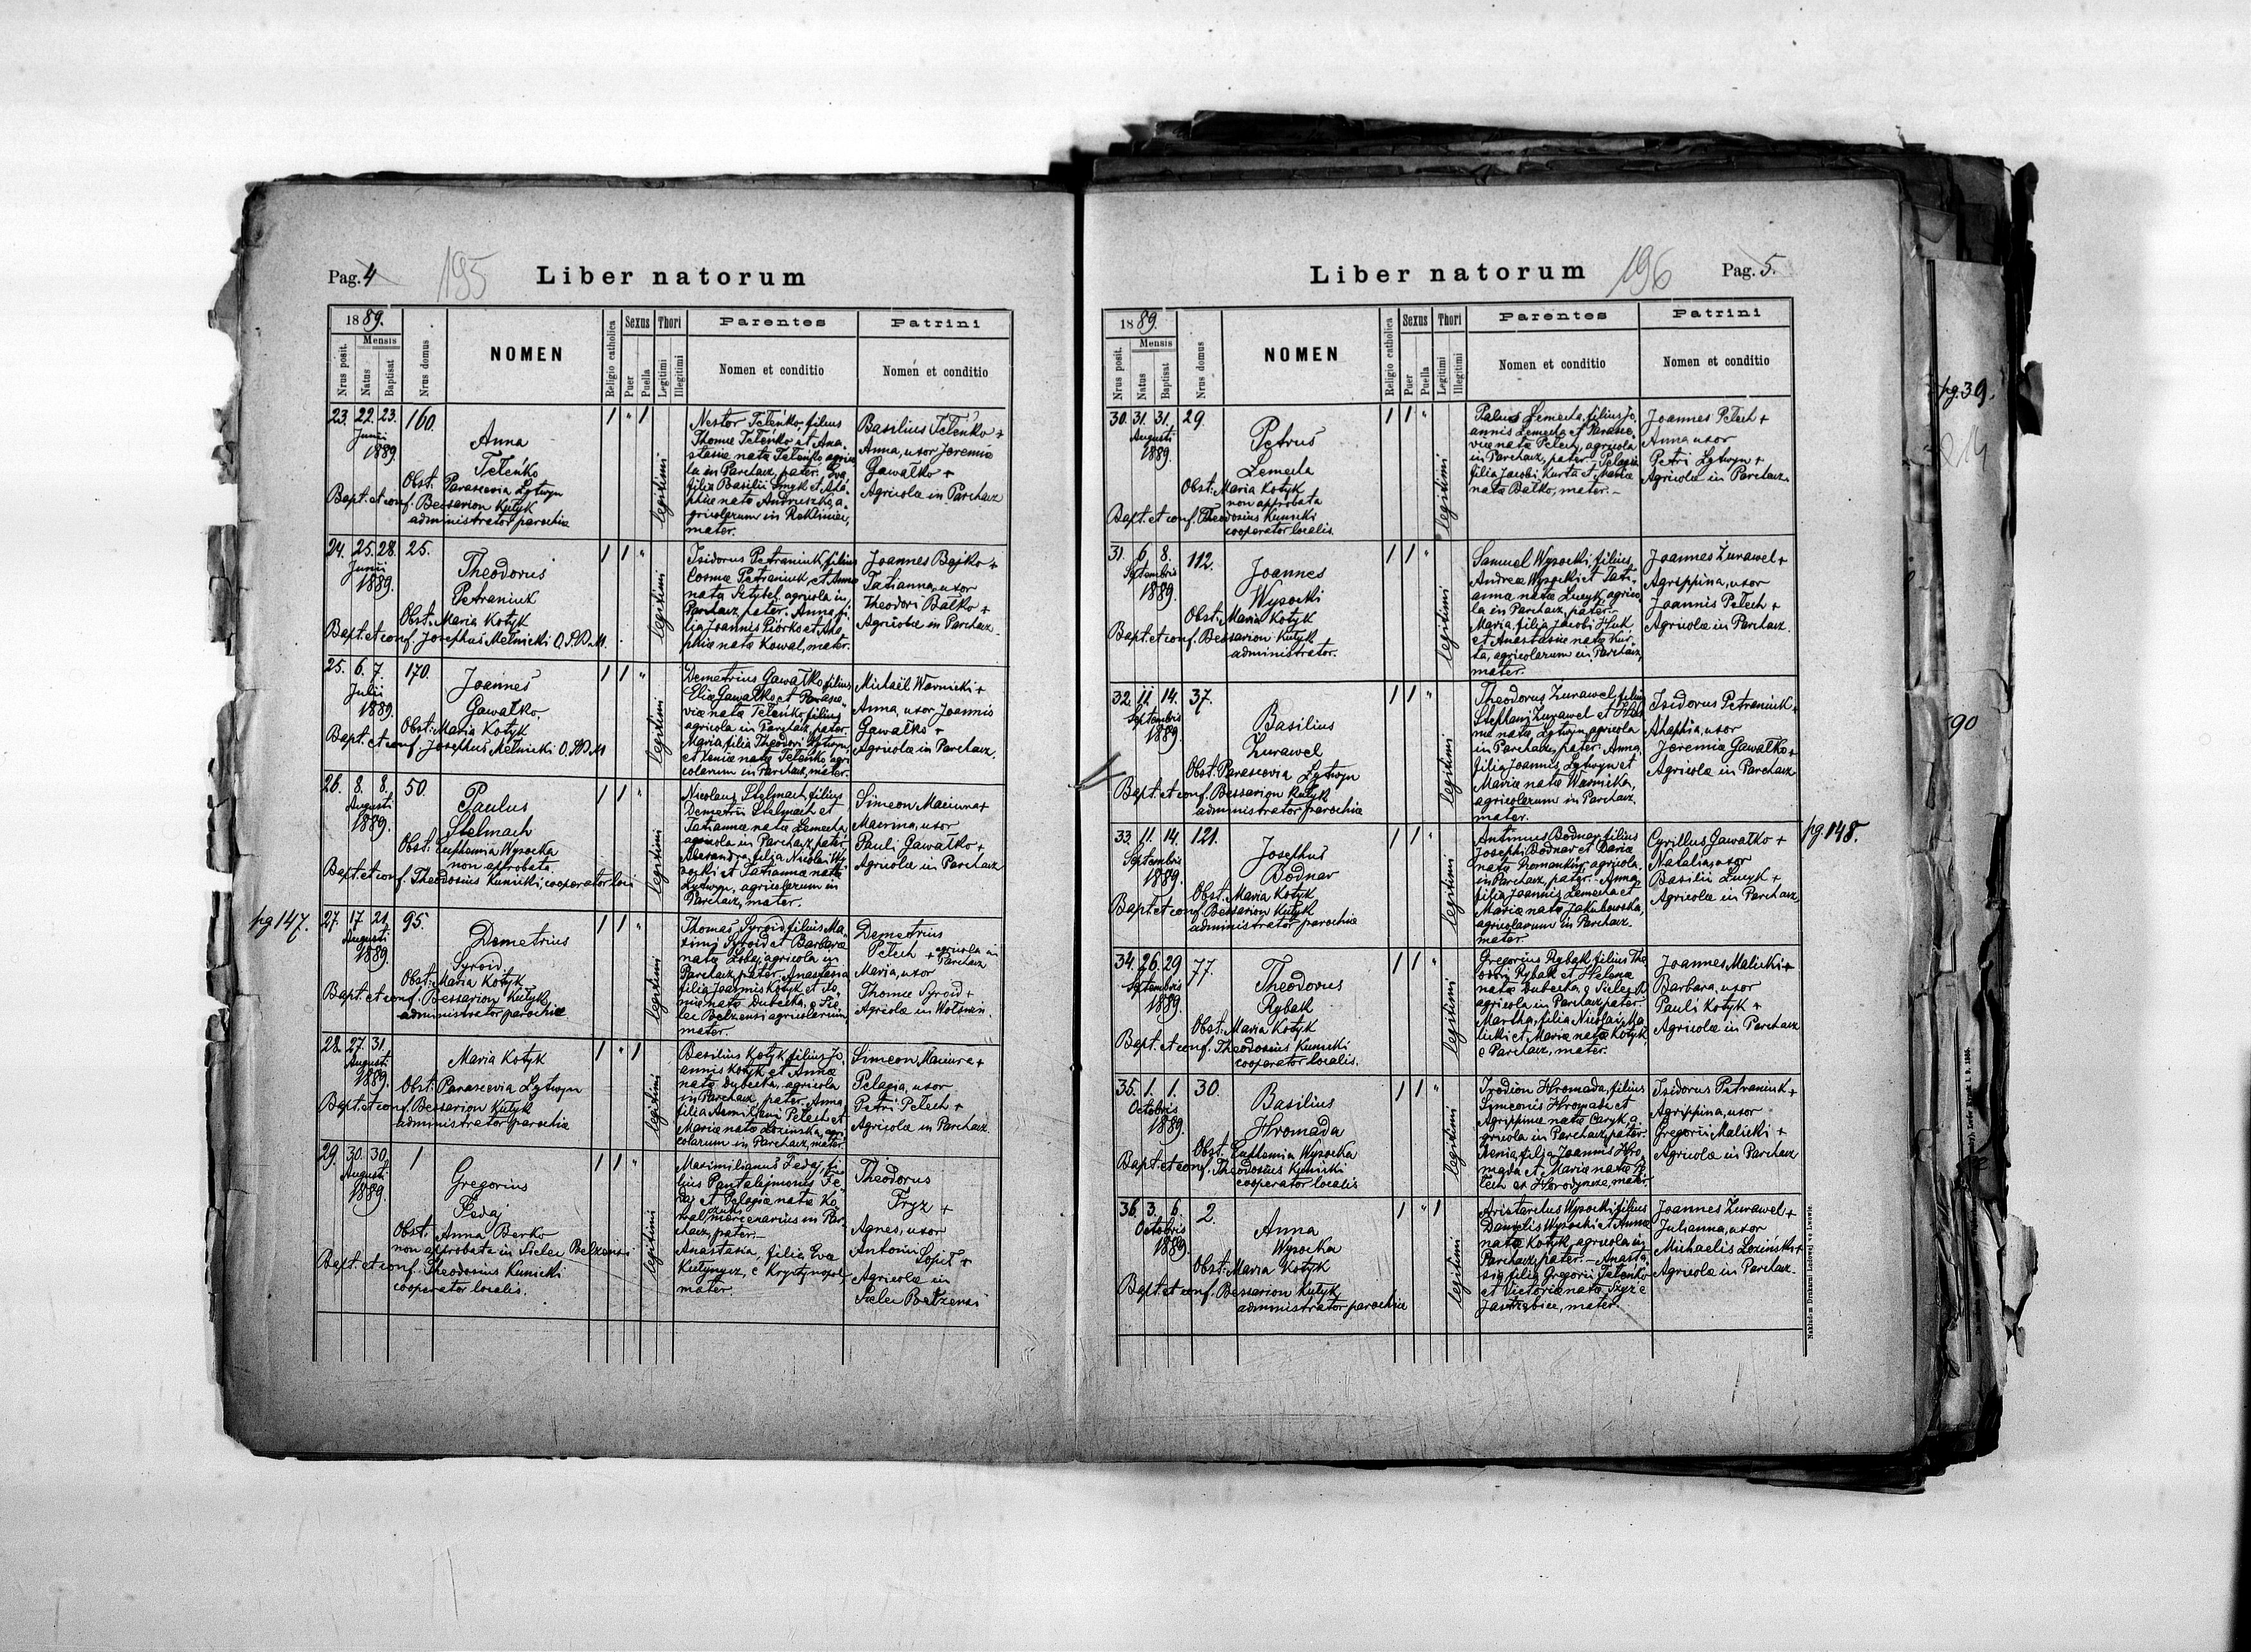 Pag. 4
195
Liber natorum
1889.
Mensis
Nrus posit.
Natus
Baptisat
Nrus domus
NOMEN
Religio catholica
Sexus
Puer
Puella
Thori
Legitimi
Illegitimi
Parentes
Nomen et conditio
Patrini
Nomen et conditio
23. 22. 23. 160.
Junii
1889.
Anna
Teleńko
Obst. Parascevia Lytwyn
Bapt. et conf. Bessarion Kutyk
administrator parochiæ
1 " 1
legitimi
Nestor Teleńko, filius
Thomæ Teleńko et Ana-
stasiæ natæ Teleńko agrico
la in Parchacz, pater. Eva
filia Basilii Smyk et Aha-
phiæ natæ Andruszko, a-
gricolarum in Rekliniec,
mater.
Basilius Teleńko +
Anna, uxor Jeremiæ
Gawałko +
Agricolæ in Parchacz
24. 25. 28. 25.
Junii
1889.
Theodorus
Petraniuk
Obst. Maria Kotyk
Bapt. et conf. Josephus Melnicki O.S.B.M.
1 1 "
legitimi
Isidorus Petraniuk, filius
Cosmæ Petraniuk, et Annæ
natæ Setybel, agricola in
Parchacz, pater. Anna, fi-
lia Joannis Piórko et Aha
phiæ natæ Kowal, mater.
Joannes Bojko +
Tatianna, uxor
Theodori Bałko +
Agricolæ in Parchacz
25. 6. 7. 170.
Julii
1889.
Joannes
Gawałko.
Obst. Maria Kotyk
Bapt. et conf. Josephus Melnicki O.S.B.M
1 1 "
legitimi
Demetrius Gawałko, filius
Eliæ Gawałko et Parasce-
viæ natæ Teleńko, filius
agricola in Parchacz, pater.
Maria filia Theodori Lytwyn,
et Xeniæ natæ Teleńko agri
colarum in Parchacz, mater.
Michaël Warnicki +
Anna, uxor Joannis
Gawałko +
Agricolæ in Parchacz.
26. 8. 8. 50
Augusti
1889.
Paulus
Stelmach
Obst. Euphemia Wysocka
non approbata
Bapt. et conf. Theodosius Kunicki, cooperator loci
1 1 "
legitimi
Nicolaus Stelmach, filius
Demetrii Stelmach et
Tatiannæ natæ Lemecha
agricola in Parchacz, pater.
Alexandra, filia Nicolai Wy
socki et Tatiannæ natæ
Lytwyn, agricolarum in
Parchacz, mater.
Simeon Maciura +
Macrina, uxor
Pauli Gawałko +
Agricolæ in Parchacz
pg 147.
27. 17 21. 95.
Augusti
1889.
Demetrius
Syroid
Obst. Maria Kotyk
Bapt. et conf. Bessarion Kutyk
administrator parochiæ
1 1 "
legitimi
Thomas Syroid, filius Ma-
ximi Syroid et Barbaræ
natæ Lobaj, agricola in
Parchacz, pater. Anastasia
filia Joannis Kotyk et
natæ Dubecka, e Sie-
lec Belzensi agricolarum,
mater.
Demetrius
Petech + agricola in
Parchacz
Maria, uxor
Thomæ Syroid +
Agricolæ in Wolświn.
28. 27. 31.
Augusti
1889.
Maria Kotyk
Obst. Parascevia Lytwyn
Bapt. et conf. Bessarion Kutyk
administrator parochiæ
1 " 1
legitimi
Basilius Kotyk, filius Jo-
annis Kotyk et Annæ
natæ Dubecka, agricola
in Parchacz, pater. Anna
filia Aemiliani Petech et
Mariæ natæ Lozinska, agri
colarum in Parchacz, mater
Simeon Maciura +
Pelagia, uxor
Petri Petech +
Agricolæ in Parchacz
29. 30. 30. 1
Augusti
1889.
Gregorius
Fedaj
Obst. Anna Berko
non approbata in Sielec Belzensi
Bapt. et conf. Theodosius Kunicki
cooperator localis.
1 1 "
legitimi
Maximilianus Fedaj, fi-
lius Pantalejmonis Fe-
daj et Pelagiæ natæ Ko
walczuk mercenarius in Par-
chacz, pater.-
Anastasia, filia Evæ
Kutynycz, e Krystynopol,
mater.
Theodorus
Fryz +
Agnes, uxor
Antonii
Sopit +
Agricolæ in
Sielec Bełzensi
Liber natorum
196
Pag. 5.
1889.
Mensis
Nrus posit.
Natus
Baptisat
Nrus domus
NOMEN
Religio catholica
Sexus
Puer
Puella
Thori
Legitimi
Illegitimi
Parentes
Nomen et conditio
Patrini
Nomen et conditio
30. 31. 31. 29.
Augusti
1889.
Petrus
Lemecha
Obst. Maria Kotyk
non approbata
Bapt. et conf. Theodosius Kunicki
cooperator localis.
1 1 "
legitimi
Paulus Lemecha, filius Jo-
annis Lemecha et Parasce-
viæ natæ Petech, agricola
in Parchacz, pater. - Pelagia
filia Jacobi Kurta et Mariæ
natæ Bałko, mater. -
Joannes Petech +
Anna uxor
Petri Lytwyn +
Agricolæ in Parchacz.
31. 6. 8. 112.
Septembris
1889.
Joannes
Wysocki
Obst. Maria Kotyk
Bapt. et conf. Bessarion Kutyk
administrator.
1 1 "
legitimi
Samuel Wysocki, filius
Andreæ Wysocki et Tati-
annæ natæ Lucyk, agrico-
la in Parchacz, pater. -
Maria, filia Jacobi Huk
et Anastasiæ natæ Kur-
ta, agricolarum in Parchacz,
mater.
Joannes Żurawel +
Agrippina, uxor
Joannis Petech +
Agricolæ in Parchacz.
32. 11. 14. 37.
Septembris
1889.
Basilius
Żurawel
Obst. Parascevia Lytwyn
Bapt. et conf. Bessarion Kutyk
administrator parochiæ
1 1 "
legitimi
Theodorus Żurawel, filius
Stephani Żurawel et Hele
næ natæ Lytwyn, agricola
in Parchacz, pater. Anna,
filia Joannis Lytwyn et
Mariæ natæ Warnicka,
agricolarum in Parchacz.
mater.
Isidorus Petraniuk +
Ahaphia, uxor
Jeremiæ Gawałko +
Agricolæ in Parchacz
33. 11. 14. 121.
Septembris
1889.
Josephus
Bodnar
Obst. Maria Kotyk
Bapt. et conf. Bessarion Kutyk
administrator parochiæ
1 1 "
legitimi
Antimus Bodnar, filius
Josephi Bodnar et Dariæ
natæ Romankiw, agricola
in Parchacz, pater. - Anna,
filia Joannis Lemecha et
Mariæ natæ Jakubowska,
agricolarum in Parchacz.
mater.
Cyrillus Gawałko +
Natalia, uxor
Basilii Lucyk +
Agricolæ in Parchacz,
pg 148.
34. 26. 29. 77.
Septembris
1889.
Theodorus
Rybak
Obst. Maria Kotyk
Bapt. et conf. Theodosius Kunicki
cooperator localis.
1 1 "
legitimi
Gregorius Rybak, filius The
odori Rybak et Helenæ
natæ Dubecka, e Sielec B.
agricola in Parchacz pater.
Martha, filia Nicolai Ma-
licki et Mariæ natæ Kotyk,
e Parchacz, mater.
Joannes Malicki +
Barbara, uxor
Pauli Kotyk +
Agricolæ in Parchacz
35. 1. 1. 30.
Octobris
1889.
Basilius
Hromada
Obst. Euphemia Wysocka
Bapt. et conf. Theodosius Kunicki
cooperator localis
1 1 "
legitimi
Irodion Hromada, filius
Simeonis Hromada et
Agrippinæ natæ Caryk, a-
gricola in Parchacz, pater.
Xenia, filia Joannis Hro-
mada et Mariæ natæ Pe-
tech ex Horodyszcze, mater.
Isidorus Petraniuk +
Agrippina, uxor
Gregorii Malicki +
Agricolæ in Parchacz
36. 3. 6. 2.
Octobris
1889.
Anna
Wysocka
Obst. Maria Kotyk
Bapt. et conf. Bessarion Kutyk
administrator parochiæ
1 " 1
legitimi
Aristarchus Wysocki, filius
Danielis Wysocki et Annæ
natæ Kotyk, agricola in
Parchacz, pater. - Anasta-
sia filia Gregorii Teleńko
et Victoriæ natæ Szyż e
Jastrzębice, mater.
Joannes Żurawel +
Julianna, uxor
Michaelis Loziński +
Agricolæ in Parchacz.
Nakładem Drukarni Ludowej we Lwowie.
pg. 39.
90